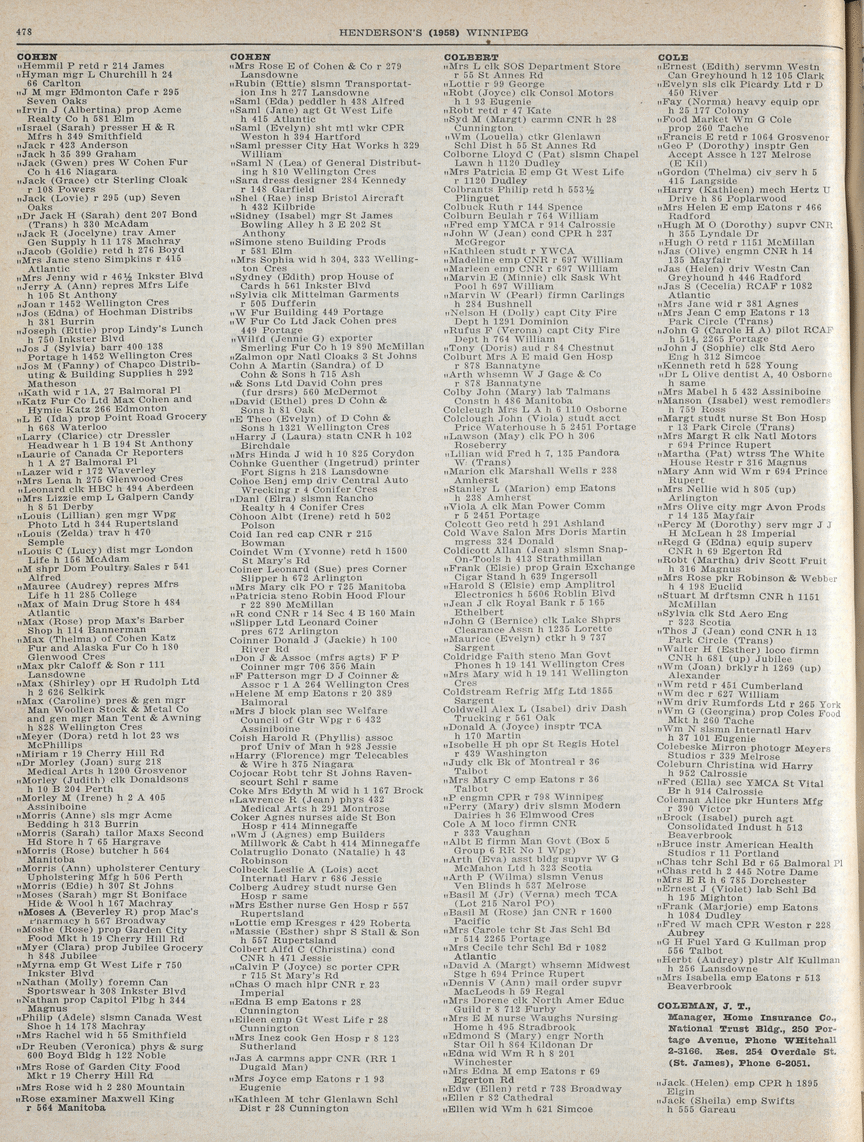 478
HENDERSON'S (1958) WINNIPEG
COHEN
"Hemmil P retd r 214 James
"Hyman mgr L Churchill h 24
66 Carlton
"J M mgr Edmonton Cafe r 295
Seven Oaks
"Irvin J (Albertina) prop Acme
Realty Co h 581 Elm
"Israel (Sarah) presser H & R
Mfrs h 349 Smithfield
"Jack r 423 Anderson
"Jack h 35 399 Graham
"Jack (Gwen) pres W Cohen Fur
Co h 416 Niagara
"Jack (Grace) ctr Sterling Cloak
r 108 Powers
"Jack (Lovie) r 295 (up) Seven
Oaks
"Dr Jack H (Sarah) dent 207 Bond
(Trans) h 330 McAdam
"Jack R (Jocelyne) trav Amer
Gen Supply h 11 178 Machray
"Jacob (Goldie) retd h 276 Boyd
"Mrs Jane steno Simpkins r 415
Atlantic
"Mrs Jenny wid r 46½ Inkster Blvd
"Jerry A (Ann) repres Mfrs Life
h 105 St Anthony
"Joan r 1452 Wellington Cres
"Jos (Edna) of Hochman Distribs
h 381 Burrin
"Joseph (Ettie) prop Lindy's Lunch
h 750 Inkster Blvd
"Jos J (Sylvia) barr 400 138
Portage h 1452 Wellington Cres
"Jos M (Fanny) of Chapco Distrib-
uting & Building Supplies h 292
Matheson
"Kath wid r 1A, 27 Balmoral Pl
"Katz Fur Co Ltd Max Cohen and
Hymie Katz 266 Edmonton
"L E (Ida) prop Point Road Grocery
h 668 Waterloo
"Larry (Clarice) ctr Dressler
Headwear h 1 B 194 St Anthony
"Laurie of Canada Cr Reporters
h 1 A 27 Balmoral Pl
"Lazer wid r 172 Waverley
"Mrs Lena h 275 Glenwood Cres
"Leonard clk HBC h 494 Aberdeen
"Mrs Lizzie emp L Galpern Candy
h 8 51 Derby
"Louis (Lillian) gen mgr Wpg
Photo Ltd h 344 Rupertsland
"Louis (Zelda) trav h 470
Semple
"Louis C (Lucy) dist mgr London
Life h 156 McAdam
"M shpr Dom Poultry Sales r 541
Alfred
"Mauree (Audrey) repres Mfrs
Life h 11 285 College
"Max of Main Drug Store h 484
Atlantic
"Max (Rose) prop Max's Barber
Shop h 114 Bannerman
"Max (Thelma) of Cohen Katz
Fur and Alaska Fur Co h 180
Glenwood Cres
"Max pkr Caloff & Son r 111
Lansdowne
"Max (Shirley) opr H Rudolph Ltd
h 2 626 Selkirk
"Max (Caroline) pres & gen mgr
Man Woollen Stock & Metal Co
and gen mgr Man Tent & Awning
h 828 Wellington Cres
"Meyer (Dora) retd h lot 23 ws
McPhillips
"Miriam r 19 Cherry Hill Rd
"Dr Morley (Joan) surg 218
Medical Arts h 1200 Grosvenor
"Morley (Judith) clk Donaldsons
h 10 B 204 Perth
"Morley M (Irene) h 2 A 405
Assiniboine
"Morris (Anne) sls mgr Acme
Bedding h 313 Burrin
"Morris (Sarah) tailor Maxs Second
Hd Store h 7 65 Hargrave
"Morris (Rose) butcher h 564
Manitoba
"Morris (Ann) upholsterer Century
Upholstering Mfg h 506 Perth
"Morris (Edie) h 307 St Johns
"Moses (Sarah) mgr St Boniface
Hide & Wool h 167 Machray
"Moses A (Beverley R) prop Mac's
Pharmacy h 567 Broadway
"Moshe (Rose) prop Garden City
Food Mkt h 19 Cherry Hill Rd
"Myer (Clara) prop Jubilee Grocery
h 848 Jubilee
"Myrna emp Gt West Life r 750
Inkster Blvd
"Nathan (Molly) foremn Can
Sportswear h 308 Inkster Blvd
"Nathan prop Capitol Plbg h 344
Magnus
"Philip (Adele) slsmn Canada West
Shoe h 14 178 Machray
"Mrs Rachel wid h 55 Smithfield
"Dr Reuben (Veronica) phys & surg
600 Boyd Bldg h 122 Noble
"Mrs Rose of Garden City Food
Mkt r 19 Cherry Hill Rd
"Mrs Rose wid h 2 280 Mountain
"Rose examiner Maxwell King
r 564 Manitoba
COHEN
"Mrs Rose E of Cohen & Co r 279
Lansdowne
"Rubin (Ettie) slsmn Transportat-
ion Ins h 277 Lansdowne
"Saml (Eda) peddler h 438 Alfred
"Saml (Jane) agt Gt West Life
h 415 Atlantic
"Saml (Evelyn) sht mtl wkr CPR
Weston h 394 Hartford
"Saml presser City Hat Works h 329
William
"Saml N (Lea) of General Distribut-
ing h 810 Wellington Cres
"Sara dress designer 284 Kennedy
r 148 Garfield
"Shel (Rae) insp Bristol Aircraft
h 432 Kilbride
"Sidney (Isabel) mgr St James
Bowling Alley h 3 E 202 St
Anthony
"Simone steno Building Prods
r 581 Elm
"Mrs Sophia wid h 304, 333 Welling-
ton Cres
"Sydney (Edith) prop House of
Cards h 561 Inkster Blvd
"Sylvia clk Mittelman Garments
r 505 Dufferin
"W Fur Building 449 Portage
"W Fur Co Ltd Jack Cohen pres
449 Portage
"Wilfd (Jennie G) exporter
Smerling Fur Co h 19 890 McMillan
"Zalmon opr Natl Cloaks 3 St Johns
Cohn A Martin (Sandra) of D
Cohn & Sons h 715 Ash
"& Sons Ltd David Cohn pres
(fur drsrs) 560 McDermot
"David (Ethel) pres D Cohn &
Sons h 81 Oak
"E Theo (Evelyn) of D Cohn &
Sons h 1321 Wellington Cres
"Harry J (Laura) statn CNR h 102
Birchdale
"Mrs Hinda J wid h 10 825 Corydon
Cohnke Guenther (Ingetrud) printer
Fort Signs h 218 Lansdowne
Cohoe Benj emp driv Central Auto
Wrecking r 4 Conifer Cres
"Danl (Elra) slsmn Rancho
Realty h 4 Conifer Cres
Cohoon Albt (Irene) retd h 502
Polson
Coid Ian red cap CNR r 215
Bowman
Coindet Wm (Yvonne) retd h 1500
St Mary's Rd
Coiner Leonard (Sue) pres Corner
Slipper h 672 Arlington
"Mrs Mary clk PO r 725 Manitoba
"Patricia steno Robin Hood Flour
r 22 890 McMillan
"R cond CNR r 14 Sec 4 B 160 Main
"Slipper Ltd Leonard Coiner
pres 672 Arlington
Coinner Donald J (Jackie) h 100
River Rd
"Don J & Assoc (mfrs agts) F P
Coinner mgr 706 356 Main
"F Patterson mgr D J Coinner &
Assoc r 1 A 264 Wellington Cres
"Helene M emp Eatons r 20 389
Balmoral
"Mrs J block plan sec Welfare
Council of Gtr Wpg r 6 432
Assiniboine
Coish Harold R (Phyllis) assoc
prof Univ of Man h 928 Jessie
"Harry (Florence) mgr Telecables
& Wire h 375 Niagara
Cojocar Robt tchr St Johns Raven-
scourt Schl r same
Coke Mrs Edyth M wid h 1 167 Brock
"Lawrence R (Jean) phys 432
Medical Arts h 291 Montrose
Coker Agnes nurses aide St Bon
Hosp r 414 Minnegaffe
"Wm J (Agnes) emp Builders
Millwork & Cabt h 414 Minnegaffe
Colatruglio Donato (Natalie) h 43
Robinson
Colbeck Leslie A (Lois) acct
Internatl Harv r 686 Jessie
Colberg Audrey studt nurse Gen
Hosp r same
"Mrs Esther nurse Gen Hosp r 557
Rupertsland
"Lottie emp Kresges r 429 Roberta
"Massie (Esther) shpr S Stall & Son
h 557 Rupertsland
Colbert Alfd C (Christina) cond
CNR h 471 Jessie
"Calvin P (Joyce) sc porter CPR
r 715 St Mary's Rd
"Chas O mach hlpr CNR r 23
Imperial
"Edna B emp Eatons r 28
Cunnington
"Eileen emp Gt West Life r 28
Cunnington
"Mrs Inez cook Gen Hosp r 8 123
Sutherland
"Jas A carmns appr CNR (RR 1
Dugald Man)
"Mrs Joyce emp Eatons r 1 93
Eugenie
"Kathleen M tchr Glenlawn Schl
Dist r 28 Cunnington
COLBERT
"Mrs L clk SOS Department Store
r 55 St Annes Rd
"Lottie r 99 George
"Robt (Joyce) clk Consol Motors
h 1 93 Eugenie
"Robt retd r 47 Kate
"Syd M (Margt) carmn CNR h 28
Cunnington
"Wm (Louella) ctkr Glenlawn
Schl Dist h 55 St Annes Rd
Colborne Lloyd C (Pat) slsmn Chapel
Lawn h 1120 Dudley
"Mrs Patricia E emp Gt West Life
r 1120 Dudley
Colbrants Philip retd h 553½
Plinguet
Colbuck Ruth r 144 Spence
Colburn Beulah r 764 William
"Fred emp YMCA r 914 Calrossie
"John W (Jean) cond CPR h 237
McGregor
"Kathleen studt r YWCA
"Madeline emp CNR r 697 William
"Marleen emp CNR r 697 William
"Marvin E (Minnie) clk Sask Wht
Pool h 697 William
"Marvin W (Pearl) firmn Carlings
h 284 Bushnell
"Nelson H (Dolly) capt City Fire
Dept h 1291 Dominion
"Rufus F (Verona) capt City Fire
Dept h 764 William
"Tony (Doris) aud r 84 Chestnut
Colburt Mrs A E maid Gen Hosp
r 878 Bannatyne
"Arth whsemn W J Gage & Co
r 878 Bannatyne
Colby John (Mary) lab Talmans
Constn h 486 Manitoba
Colcleigh Mrs L A h 6 110 Osborne
Colclough John (Viola) studt acct
Price Waterhouse h 5 2451 Portage
"Lawson (May) clk PO h 306
Roseberry
"Lilian wid Fred h 7, 135 Pandora
W (Trans)
"Marion clk Marshall Wells r 238
Amherst
"Stanley L (Marion) emp Eatons
h 238 Amherst
"Viola A clk Man Power Comm
r 5 2451 Portage
Colcott Geo retd h 291 Ashland
Cold Wave Salon Mrs Doris Martin
mgress 324 Donald
Coldicott Allan (Jean) slsmn Snap-
On-Tools h 413 Strathmillan
"Frank (Elsie) prop Grain Exchange
Cigar Stand h 639 Ingersoll
"Harold S (Elsie) emp Amplitrol
Electronics h 5606 Roblin Blvd
"Jean J clk Royal Bank r 5 165
Ethelbert
"John G (Bernice) clk Lake Shprs
Clearance Assn h 1235 Lorette
"Maurice (Evelyn) ctkr h 9 737
Sargent
Coldridge Faith steno Man Govt
Phones h 19 141 Wellington Cres
"Mrs Mary wid h 19 141 Wellington
Cres
Coldstream Refrig Mfg Ltd 1855
Sargent
Coldwell Alex L (Isabel) driv Dash
Trucking r 561 Oak
"Donald A (Joyce) insptr TCA
h 170 Martin
"Isobelle H ph opr St Regis Hotel
r 439 Washington
"Judy clk Bk of Montreal r 36
Talbot
"Mrs Mary C emp Eatons r 36
Talbot
"P engmn CPR r 798 Winnipeg
"Perry (Mary) driv slsmn Modern
Dairies h 36 Elmwood Cres
Cole A M loco firmn CNR
r 333 Vaughan
"Albt E firmn Man Govt (Box 5
Group 6 RR No 1 Wpg)
"Arth (Eva) asst bldg supvr W G
McMahon Ltd h 323 Scotia
"Arth P (Wilma) slsmn Venus
Ven Blinds h 537 Melrose
"Basil M (Jr) (Verna) mech TCA
(Lot 215 Narol PO)
"Basil M (Rose) jan CNR r 1600
Pacific
"Mrs Carole tchr St Jas Schl Bd
r 514 2265 Portage
"Mrs Cecile tchr Schl Bd r 1082
Atlantic
"David A (Margt) whsemn Midwest
Stge h 694 Prince Rupert
"Dennis V (Ann) mail order supvr
MacLeods h 59 Regal
"Mrs Dorene clk North Amer Educ
Guild r 8 712 Furby
"Mrs E M nurse Waughs Nursing
Home h 495 Stradbrook
"Edmond S (Mary) engr North
Star Oil h 864 Kildonan Dr
"Edna wid Wm R h 8 201
Winchester
"Mrs Edna M emp Eatons r 69
Egerton Rd
"Edw (Ellen) retd r 738 Broadway
"Ellen r 82 Cathedral
"Ellen wid Wm h 621 Simcoe
COLE
"Ernest (Edith) servmn Westn
Can Greyhound h 12 105 Clark
"Evelyn sls clk Picardy Ltd r D
450 River
"Fay (Norma) heavy equip opr
h 25 177 Colony
"Food Market Wm G Cole
prop 260 Tache
"Francis E retd r 1064 Grosvenor
"Geo P (Dorothy) insptr Gen
Accept Assce h 127 Melrose
(E Kil)
"Gordon (Thelma) civ serv h 5
415 Langside
"Harry (Kathleen) mech Hertz U
Drive h 86 Poplarwood
"Mrs Helen E emp Eatons r 466
Radford
"Hugh M O (Dorothy) supvr CNR
h 355 Lyndale Dr
"Hugh O retd r 1151 McMillan
"Jas (Olive) engmn CNR h 14
135 Mayfair
"Jas (Helen) driv Westn Can
Greyhound h 446 Radford
"Jas S (Cecelia) RCAF r 1082
Atlantic
"Mrs Jane wid r 381 Agnes
"Mrs Jean C emp Eatons r 13
Park Circle (Trans)
"John G (Carole H A) pilot RCAF
h 514, 2265 Portage
"John J (Sophie) clk Std Aero
Eng h 312 Simcoe
"Kenneth retd h 528 Young
"Dr L Olive dentist A, 40 Osborne
h same
"Mrs Mabel h 5 432 Assiniboine
"Manson (Isabel) west remodlers
h 759 Ross
"Margt studt nurse St Bon Hosp
r 13 Park Circle (Trans)
"Mrs Margt R clk Natl Motors
r 694 Prince Rupert
"Martha (Pat) wtrss The White
House Restr r 316 Magnus
"Mary Ann wid Wm r 694 Prince
Rupert
"Mrs Nellie wid h 805 (up)
Arlington
"Mrs Olive city mgr Avon Prods
r 14 135 Mayfair
"Percy M (Dorothy) serv mgr J J
H McLean h 28 Imperial
"Regd G (Edna) equip superv
CNR h 69 Egerton Rd
"Robt (Martha) driv Scott Fruit
h 316 Magnus
"Mrs Rose pkr Robinson & Webber
h 4 198 Euclid
"Stuart M drftsmn CNR h 1151
McMillan
"Sylvia clk Std Aero Eng
r 323 Scotia
"Thos J (Jean) cond CNR h 13
Park Circle (Trans)
"Walter H (Esther) loco firmn
CNR h 681 (up) Jubilee
"Wm (Joan) brklyr h 1269 (up)
Alexander
"Wm retd r 451 Cumberland
"Wm dec r 627 William
"Wm driv Rumfords Ltd r 265 York
"Wm G (Georgina) prop Coles Food
Mkt h 260 Tache
"Wm N slsmn Internatl Harv
h 37 101 Eugenie
Colebeske Mirron photogr Meyers
Studios r 339 Melrose
Coleburn Christina wid Harry
h 952 Calrossie
"Fred (Ella) sec YMCA St Vital
Br h 914 Calrossie
Coleman Alice pkr Hunters Mfg
r 390 Victor
"Brock (Isabel) purch agt
Consolidated Indust h 513
Beaverbrook
"Bruce instr American Health
Studios r 11 Portland
"Chas tchr Schl Bd r 65 Balmoral Pl
"Chas retd h 2 445 Notre Dame
"Mrs E R h 6 785 Dorchester
"Ernest J (Violet) lab Schl Bd
h 195 Mighton
"Frank (Marjorie) emp Eatons
h 1084 Dudley
"Fred W mach CPR Weston r 228
Aubrey
"G H Fuel Yard G Kullman prop
556 Talbot
"Herbt (Audrey) plstr Alf Kullman
h 256 Lansdowne
"Mrs Isabella emp Eatons r 513
Beaverbrook
COLEMAN, J. T.,
Manager, Home Insurance Co.,
National Trust Bldg., 250 Por-
tage Avenue, Phone WHitehall
2-3166. Res. 254 Overdale St.
(St. James), Phone 6-2051.
"Jack (Helen) emp CPR h 1895
Elgin
"Jack (Sheila) emp Swifts
h 555 Gareau